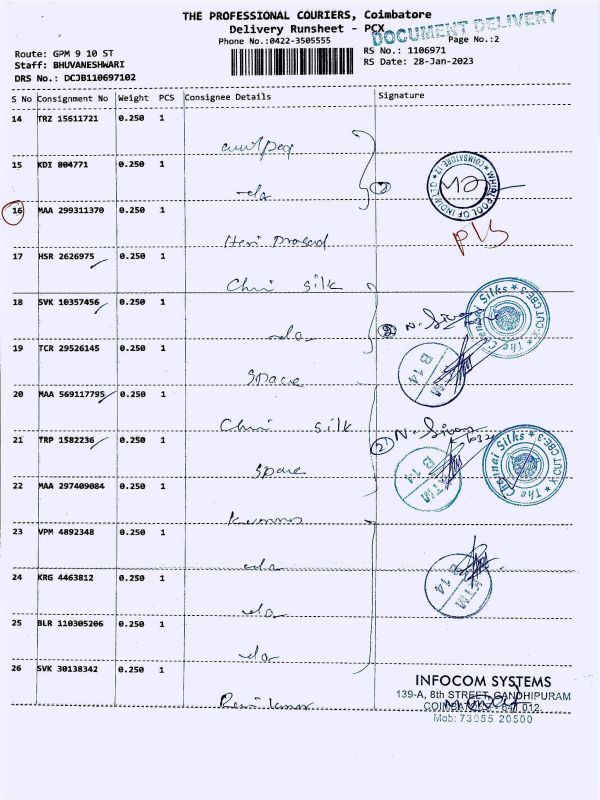 THE PROFESSIONAL COURIERS, Coimbatore
Delivery Runsheet - PCX
DOCUMENT DELIVERY
Phone No.:0422-3505555
Page No.:2
Route: GPM 9 10 ST
RS No.: 1106971
Staff: BHUVANESHWARI
RS Date: 28-Jan-2023
DRS No.: DCJB110697102
S No Consignment No Weight PCS Consignee Details Signature
14 TRZ 15611721 0.250 1
15 KDI 804771 0.250 1
do
WHIRLPOOL OF INDIA LTD COIMBATORE-12
16 MAA 299311370 0.250 1
Hari Prasad
17 HSR 2626975 0.250 1
Chni silk
18 SVK 10357456 0.250 1
do
2 N. Siva
The Chennai Silks * CUT CBE-3
19 TCR 29526145 0.250 1
Space
B 14 ATM
20 MAA 569117795 0.250 1
Chni silk
21 TRP 1582236 0.250 1
Space
2 N. Siva
The Chennai Silks * CUT CBE-3
B 14 ATM
22 MAA 297409084 0.250 1
23 VPM 4892348 0.250 1
do
24 KRG 4463812 0.250 1
do
B 14 ATM
25 BLR 110305206 0.250 1
do
26 SVK 30138342 0.250 1
INFOCOM SYSTEMS
139-A, 8th STREET, GANDHIPURAM
COIMBATORE - 641 012.
Mob: 73055 20500